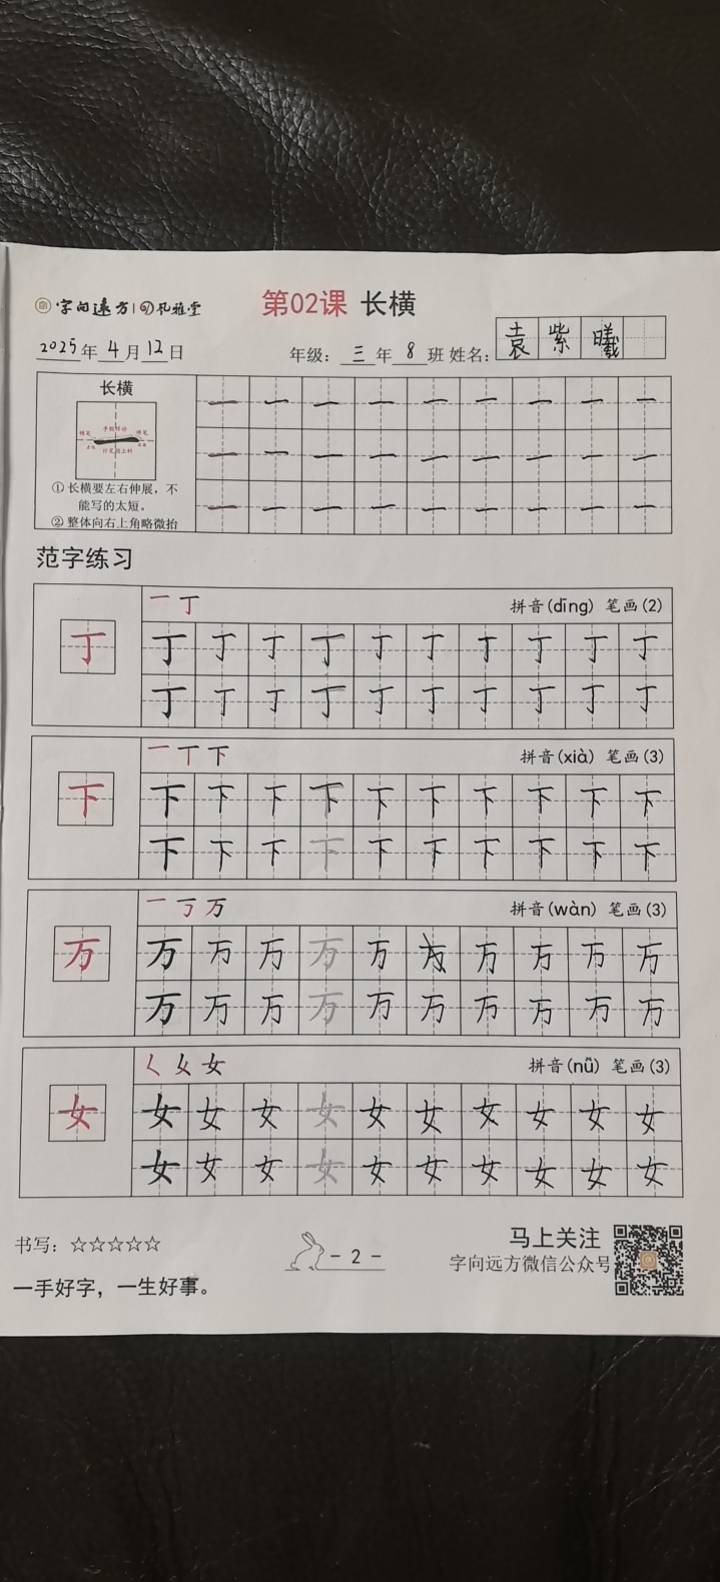 字向远方 凡雅堂
第02课 长横
2025年4月12日 年级：三年8班 姓名：袁紫曦
长横
①长横要左右伸展，不
能写的太短。
②整体向右上角略微抬
一 一 一 一 一 一 一 一 一
一 一 一 一 一 一 一 一 一
一 一 一 一 一 一 一 一 一
范字练习
一 丁 拼音(dīng) 笔画(2)
丁
丁 丁 丁 丁 丁 丁 丁 丁 丁 丁
丁 丁 丁 丁 丁 丁 丁 丁 丁 丁
一 丅 下 拼音(xià) 笔画(3)
下
下 下 下 下 下 下 下 下 下 下
下 下 下 下 下 下 下 下 下 下
一 丂 万 拼音(wàn) 笔画(3)
万
万 万 万 万 万 万 万 万 万 万
万 万 万 万 万 万 万 万 万 万
く 女 女 拼音(nǚ) 笔画(3)
女
女 女 女 女 女 女 女 女 女 女
女 女 女 女 女 女 女 女 女 女
书写：☆☆☆☆☆
一手好字，一生好事。
- 2 -
马上关注
字向远方微信公众号